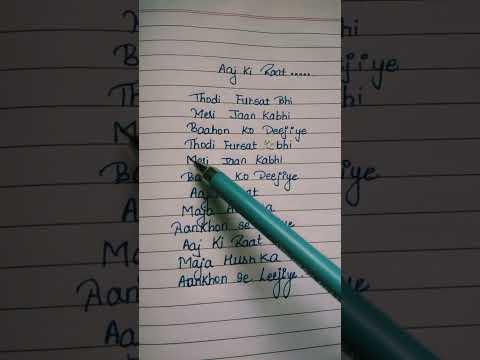 Aaj Ki Raat ......
Thodi Fursat Bhi
Meri Jaan Kabhi
Baahon Ko Deejiye
Thodi Fursat bhi
Meri Jaan Kabhi
Ko Deejiye
Maja
Aankhon se
Aaj Ki Raat
Maja Hush Ka
Aankhon se Leejiye.